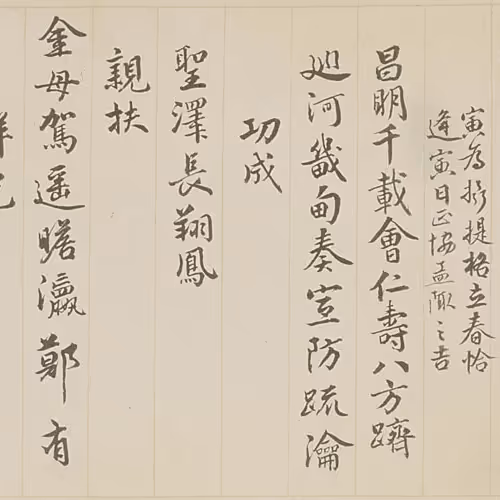 寅為攝提格立春恰
逢寅日正協孟陬之吉
昌明千載會仁壽八方躋
巡河畿甸奏宣防疏瀹
功成
聖澤長翔鳳
親扶
金母駕遥瞻瀛鄚有